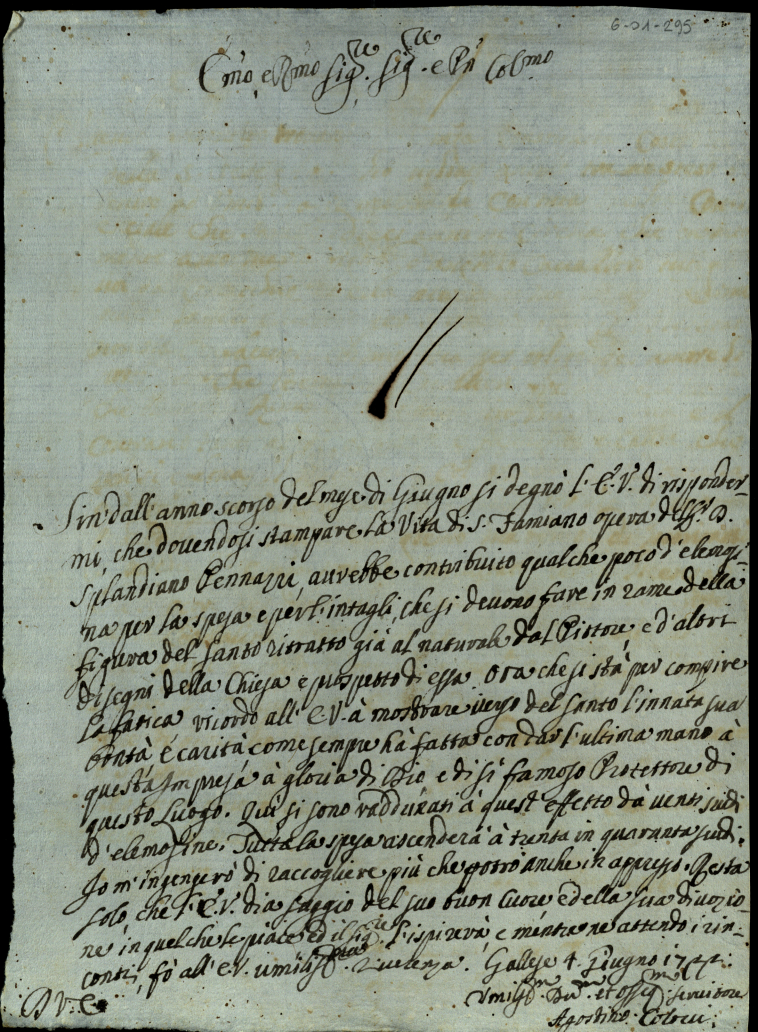 6-01-295
Em̃o e Rm̃o Sig.re Sig.re e Pñ Colmo
Sin' dall' anno scorso del mese di Giugno si degnò L' E. V. di risponder-
mi, che dovendosi stampare la Vita di S. Famiano opera del Sig.r D.
Splandiano Pennazzi, avrebbe contribuito qualche poco d' elemosi-
na per la spesa e per l' intagli, che si devono fare in rame della
figura del Santo ritratto già al naturale dal Pittore, e d' altri
disegni della Chiesa e prospetto di essa. Ora che si stà per compire
la fatica ricordo all' E. V. à mostrare verso del Santo l' innata sua
bontà, e carità come sempre hà fatta con dar l' ultima mano à
questa Impresa à gloria di Dio e di sì famoso Protettore di
questo Luogo. Qui si sono raddunati à quest' effetto dà venti scudi
d' elemosine. Tutta la spesa ascenderà à trenta in quaranta scudi.
Io m' ingegnerò di raccogliere più che potrò anche in appresso. Resta
solo che l' E. V. dia saggio del suo buon Cuore e della sua divozio-
ne in quel che le piace ed il Sig.re l' ispirerà e mentre ne attendo i rin-
contri, fò all' E. V. umilis.ma riverenza. Gallese 4. Giugno
D. V. E.
Umilis.mo Dev.mo et osseq.mo Servitore
Agostino